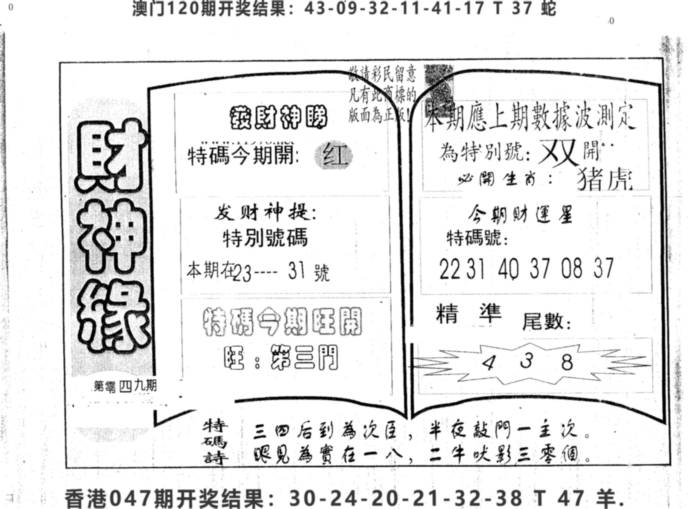 澳门120期开奖结果：43-09-32-11-41-17 T 37 蛇
敬請彩民留意
凡有此商標的
版面為正版!
財神緣
第零四九期
發財神勝
特碼今期開: 红
发财神提:
特別號碼
本期在23---- 31 號
特碼今期旺開
旺：第三門
本期應上期數據波測定
為特別號: 双 開
必開生肖： 猪虎
今期財運星
特碼號:
22 31 40 37 08 37
精 準 尾數:
4 3 8
特碼詩
三四后到為次臣，半夜敲門一主次。
眼見為實在一八，二牛吠影三零個。
香港047期开奖结果：30-24-20-21-32-38 T 47 羊.